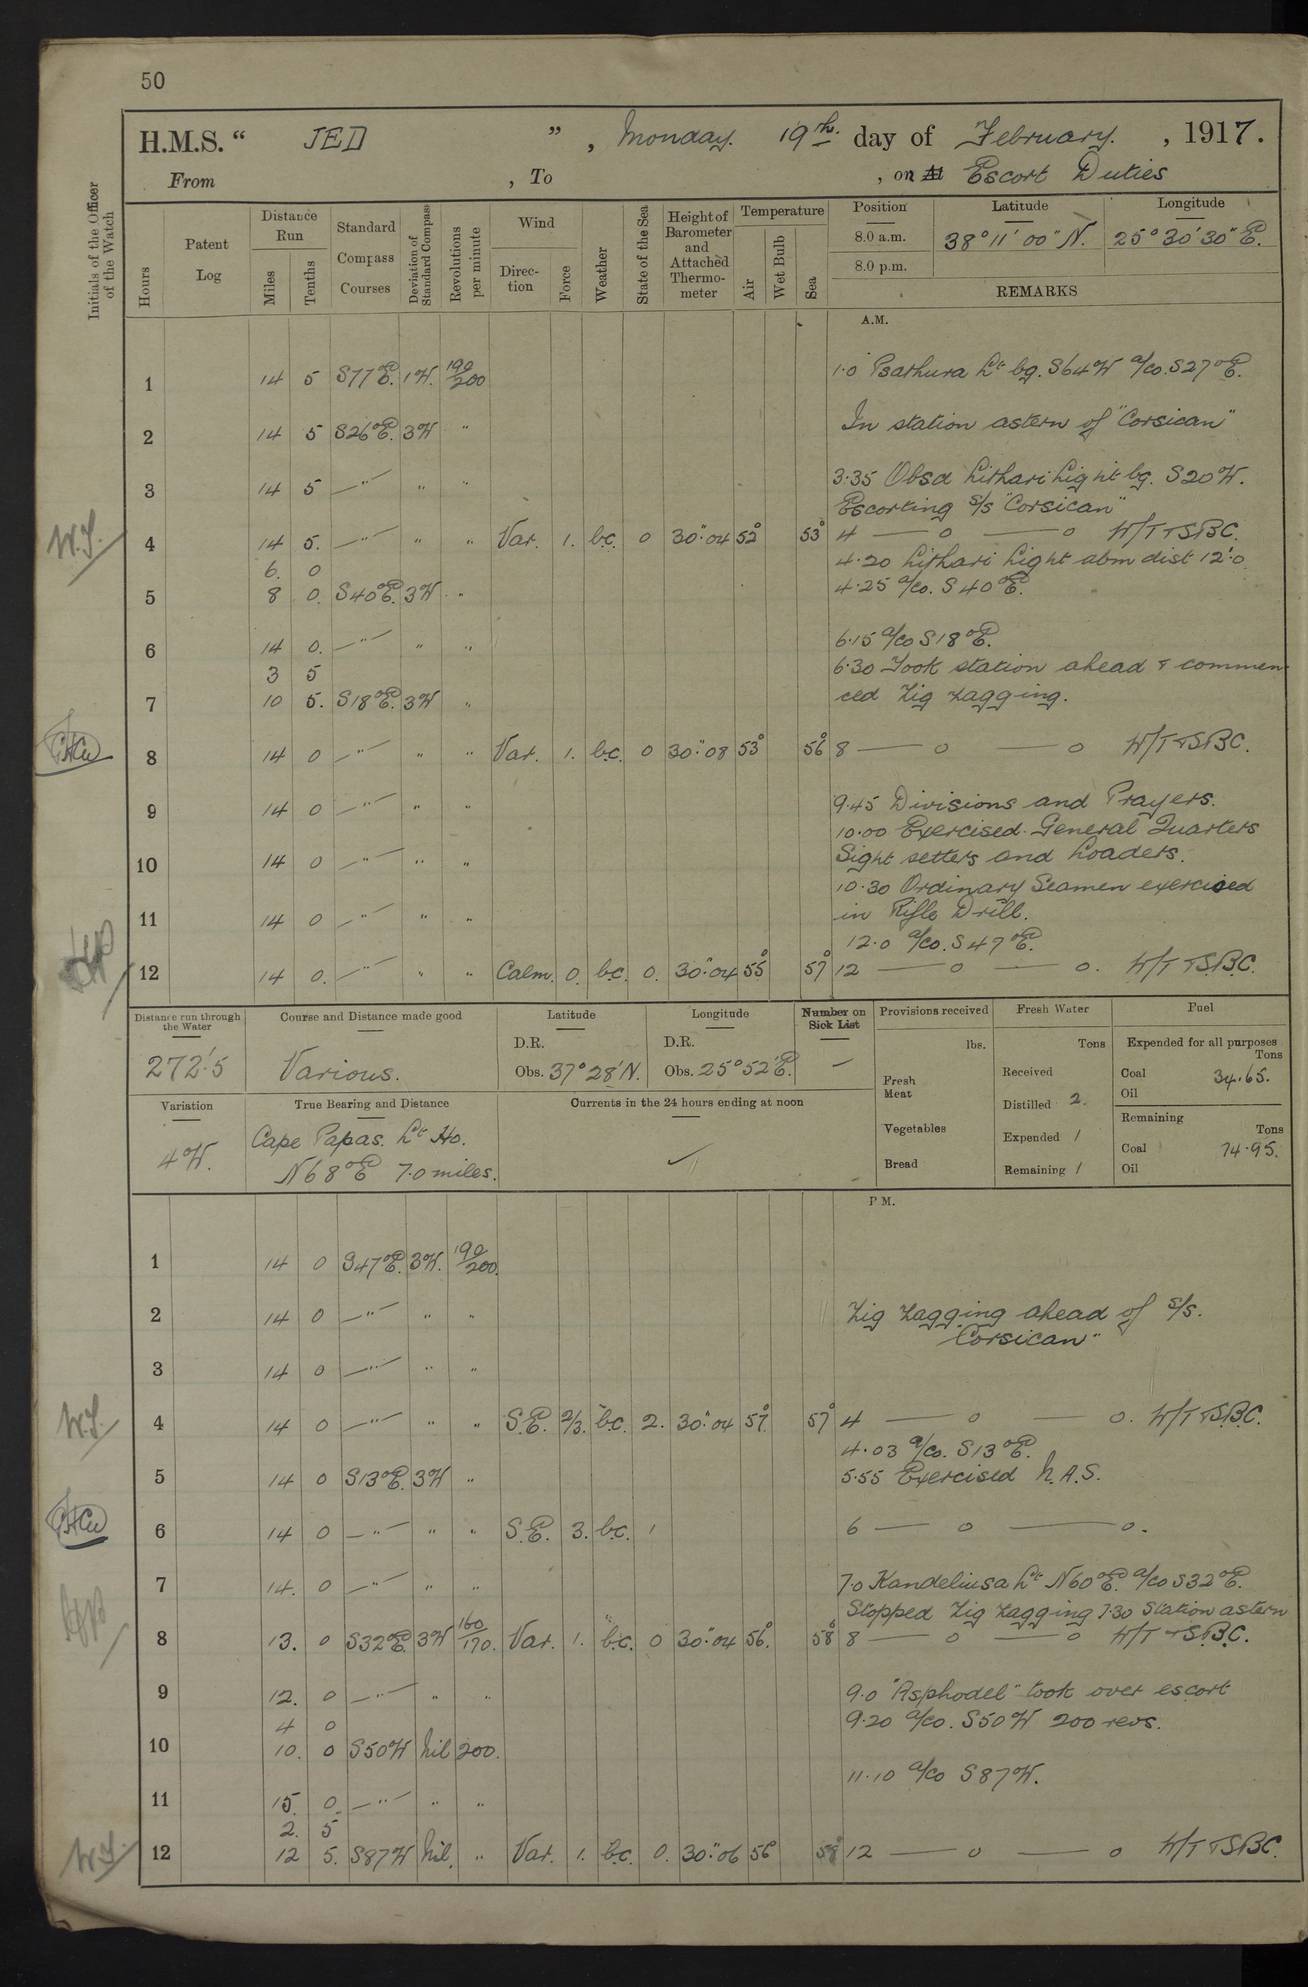 50
H.M.S. “ JED ” , Monday. 19th. day of February. , 1917.
From , To , on At Escort Duties
Initials of the Officer of the Watch
Hours
Patent Log
Distance Run
Miles
Tenths
Standard Compass Courses
Deviation of Standard Compass
Revolutions per minute
Wind
Direction
Force
Weather
State of the Sea
Height of Barometer and Attached Thermometer
Temperature
Air
Wet Bulb
Sea
Position Latitude Longitude
8.0 a.m. 38° 11' 00" N. 25° 30' 30" E.
8.0 p.m.
REMARKS
A.M.
1 14 5 S77°E. 1°W. 190/200 1.0 Psathura Lt bg. S64W a/co. S27°E.
2 14 5 S26°E. 3°W " In station astern of "Corsican"
3 14 5 —"— " " 3.35 Obsd Lithari Light bg. S20°W.
Escorting s/s "Corsican"
4 14 5. —"— " " Var. 1. b.c. 0 30".04 52° 53° 4 — o — o W/T & S.B.C.
6. 0 4.20 Lithari Light abm dist 12'.0
5 8 0. S40°E. 3°W " 4.25 a/co. S40°E.
6 14 0. —"— " " 6.15 a/co S18°E.
3 5 6.30 Took station ahead & commen-
7 10 5. S18°E. 3°W " ced Zig Zagging.
8 14 0 —"— " " Var. 1. b.c. 0 30".08 53° 56° 8 — o — o W/T & S.B.C.
9 14 0 —"— " " 9.45 Divisions and Prayers.
10.00 Exercised General Quarters
10 14 0 —"— " " Sight setters and Loaders.
10.30 Ordinary Seamen exercised
11 14 0 —"— " " in Rifle Drill.
12.0 a/co. S47°E.
12 14 0. —"— " " Calm. 0. b.c. 0. 30".04 55° 57° 12 — o — o. W/T & S.B.C.
Distance run through the Water
272'.5
Course and Distance made good
Various.
Latitude
D.R.
Obs. 37° 28' N.
Longitude
D.R.
Obs. 25° 52' E.
Number on Sick List
—
Provisions received
lbs.
Fresh Meat
Vegetables
Bread
Fresh Water
Tons
Received
Distilled 2.
Expended 1
Remaining 1
Fuel
Expended for all purposes
Tons
Coal 34.65.
Oil
Remaining
Tons
Coal 74.95.
Oil
Variation
4°W.
True Bearing and Distance
Cape Papas. Lt Ho.
N68°E 7.0 miles.
Currents in the 24 hours ending at noon
P.M.
1 14 0 S47°E. 3°W. 190/200.
2 14 0 —"— " " Zig Zagging ahead of s/s.
Corsican"
3 14 0 —"— " "
4 14 0 —"— " " S.E. 2/3. b.c. 2. 30".04 57° 57° 4 — o — o. W/T & S.B.C.
4.03 a/co. S13°E.
5 14 0 S13°E. 3°W " 5.55 Exercised N.A.S.
6 14 0 —"— " " S.E. 3. b.c. 1 6 — o — o.
7 14. 0 —"— " " 7.0 Kandeliusa Lt N60°E. a/co S32°E.
Stopped Zig Zagging 7.30 Station astern
8 13. 0 S32°E. 3°W 160/170. Var. 1. b.c. 0 30".04 56° 58° 8 — o — o W/T & S.B.C.
9 12. 0 —"— " " 9.0 "Asphodel" took over escort
4 0 9.20 a/co. S50°W 200 revs.
10 10. 0 S50W Nil 200.
11.10 a/co S87°W.
11 15. 0 —"— " "
2. 5
12 12 5. S87W Nil. " Var. 1. b.c. 0. 30".06 56° 58° 12 — o — o W/T & S.B.C.